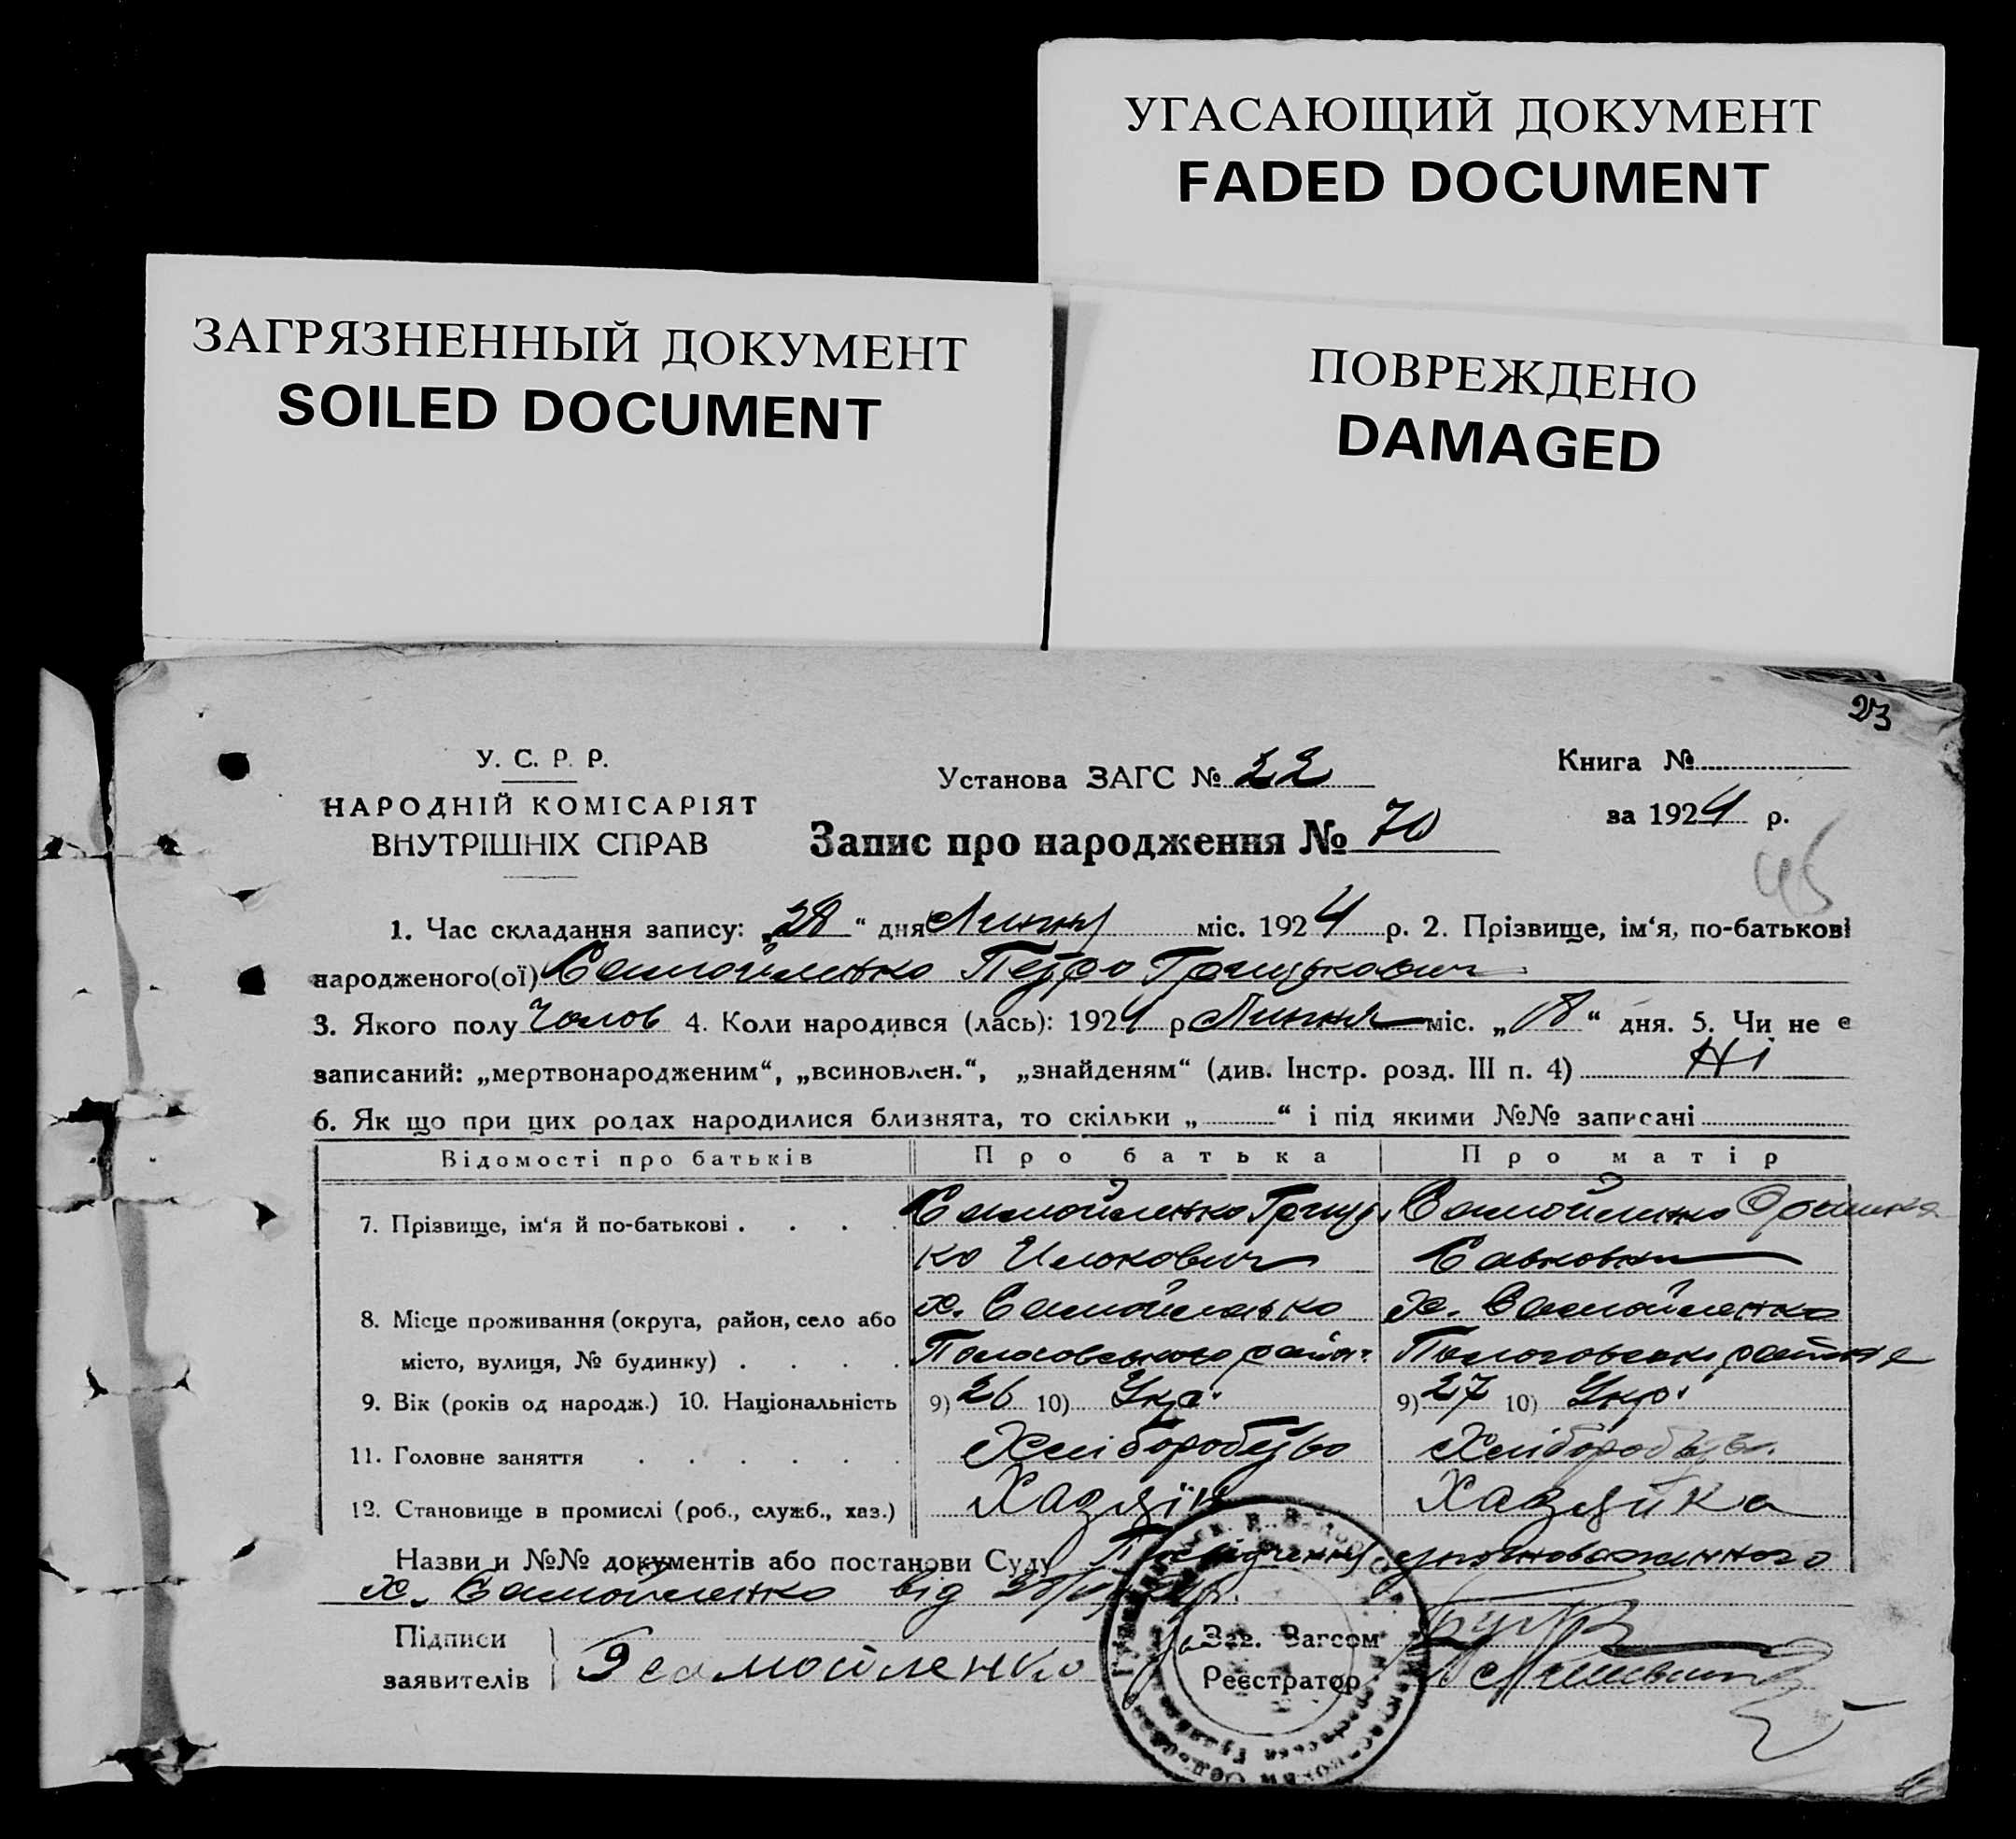 УГАСАЮЩИЙ ДОКУМЕНТ
FADED DOCUMENT
ЗАГРЯЗНЕННЫЙ ДОКУМЕНТ
SOILED DOCUMENT
ПОВРЕЖДЕНО
DAMAGED
23
У. С. Р. Р.
НАРОДНІЙ КОМІСАРІЯТ
ВНУТРІШНІХ СПРАВ
Установа ЗАГС № 22
Запис про народження № 70
Книга №
за 1924 р.
45
1. Час складання запису: „28“ дня Липня міс. 1924 р. 2. Прізвище, ім‘я, по-батькові
народженого(ої) Самойленко Петро Грицькович
3. Якого полу Чолов 4. Коли народився (лась): 1924 р. Липня міс. „18“ дня. 5. Чи не є
записаний: „мертвонародженим“, „всиновлен.“, „знайденям“ (див. Інстр. розд. III п. 4) Ні
6. Як що при цих родах народилися близнята, то скільки „ “ і під якими №№ записані
Відомості про батьків Про батька Про матір
7. Прізвище, ім‘я й по-батькові . . . . Самойленко Гриць Самойленко
ко Савковна
8. Місце проживання (округа, район, село або х. Самойленко х. Самойленко
місто, вулиця, № будинку) . . . . Пологовського район. Пологовськ району
9. Вік (років од народж.) 10. Національність 9) 26 10) Укр. 9) 27 10) Укр.
11. Головне заняття . . . . . . Хліборобство Хліборобство
12. Становище в промислі (роб., служб., хаз.) Хазяїн Хазяйка
Назви и №№ документів або постанови Суду Посвідчення уповноваженного
х. Самойленко від
Підписи
заявителів Г Самойленко
Зав. Загсом
Реєстратор